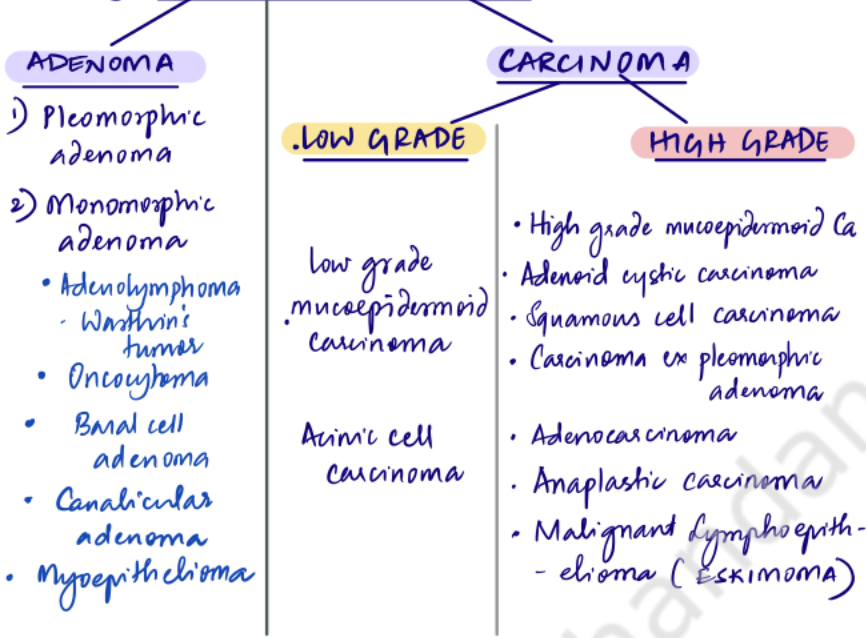 ADENOMA
1) Pleomorphic
adenoma
2) Monomorphic
adenoma
• Adenolymphoma
- Warthin's
tumor
• Oncocytoma
• Basal cell
adenoma
• Canalicular
adenoma
• Myoepithelioma
CARCINOMA
.LOW GRADE
low grade
.mucoepidermoid
carcinoma
Acinic cell
carcinoma
HIGH GRADE
• High grade mucoepidermoid Ca
• Adenoid cystic carcinoma
• Squamous cell carcinoma
• Carcinoma ex pleomorphic
adenoma
• Adenocarcinoma
• Anaplastic carcinoma
• Malignant Lymphoepith-
- elioma (ESKIMOMA)
handan